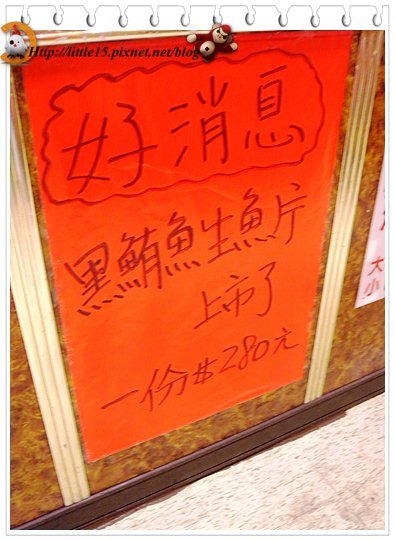 Http://little15.pixnet.net/blog
好消息
黑鮪魚生魚片
上市了
一份#280元
大
小